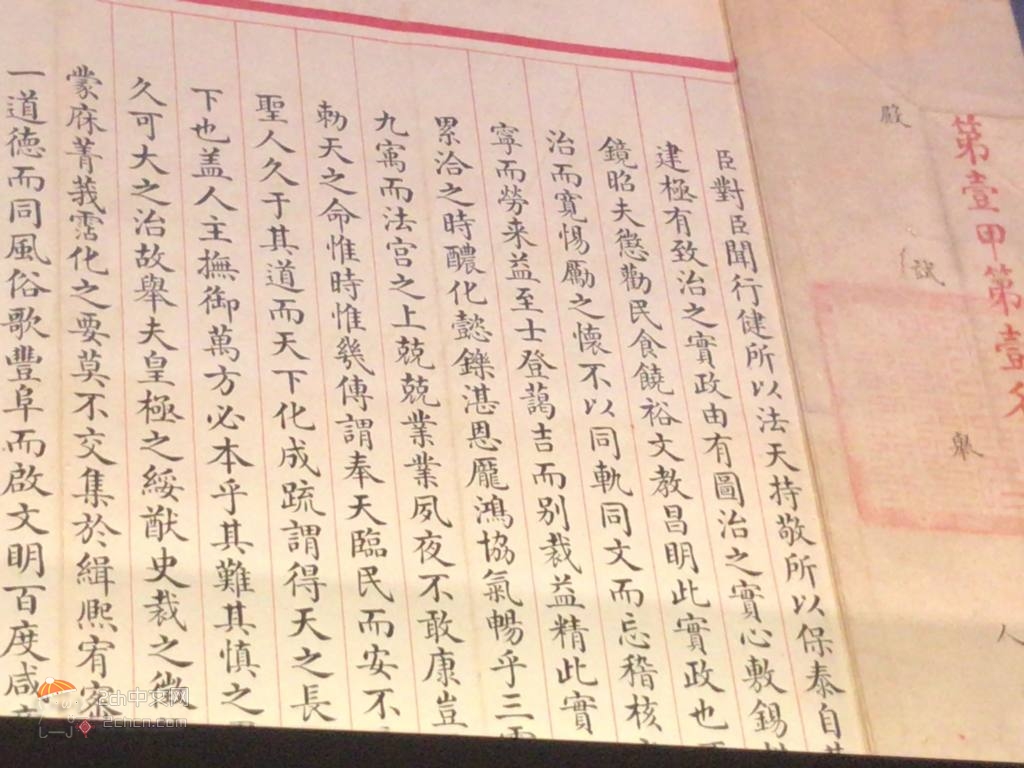 第壹甲第壹名
殿
試
舉
人
臣對臣聞行健所以法天持敬所以保泰自
建極有致治之實政由有圖治之實心敷錫
鏡昭夫懲勸民食饒裕文教昌明此實政也
治而寬惕勵之懷不以同軌同文而忘稽核
寧而勞来益至士登藹吉而别裁益精此實
累洽之時醲化懿鑠湛恩厖鴻協氣暢乎三
九寓而法宫之上兢兢業業夙夜不敢康豈
勅天之命惟時惟幾傳謂奉天臨民而安不
聖人久于其道而天下化成疏謂得天之長
下也盖人主撫御萬方必本乎其難其慎之
久可大之治故舉夫皇極之綏猷史裁之
蒙庥菁莪霑化之要莫不交集於緝熙宥密
一道德而同風俗歌豐阜而啟文明百度咸
2ch中文网
2chcn.com